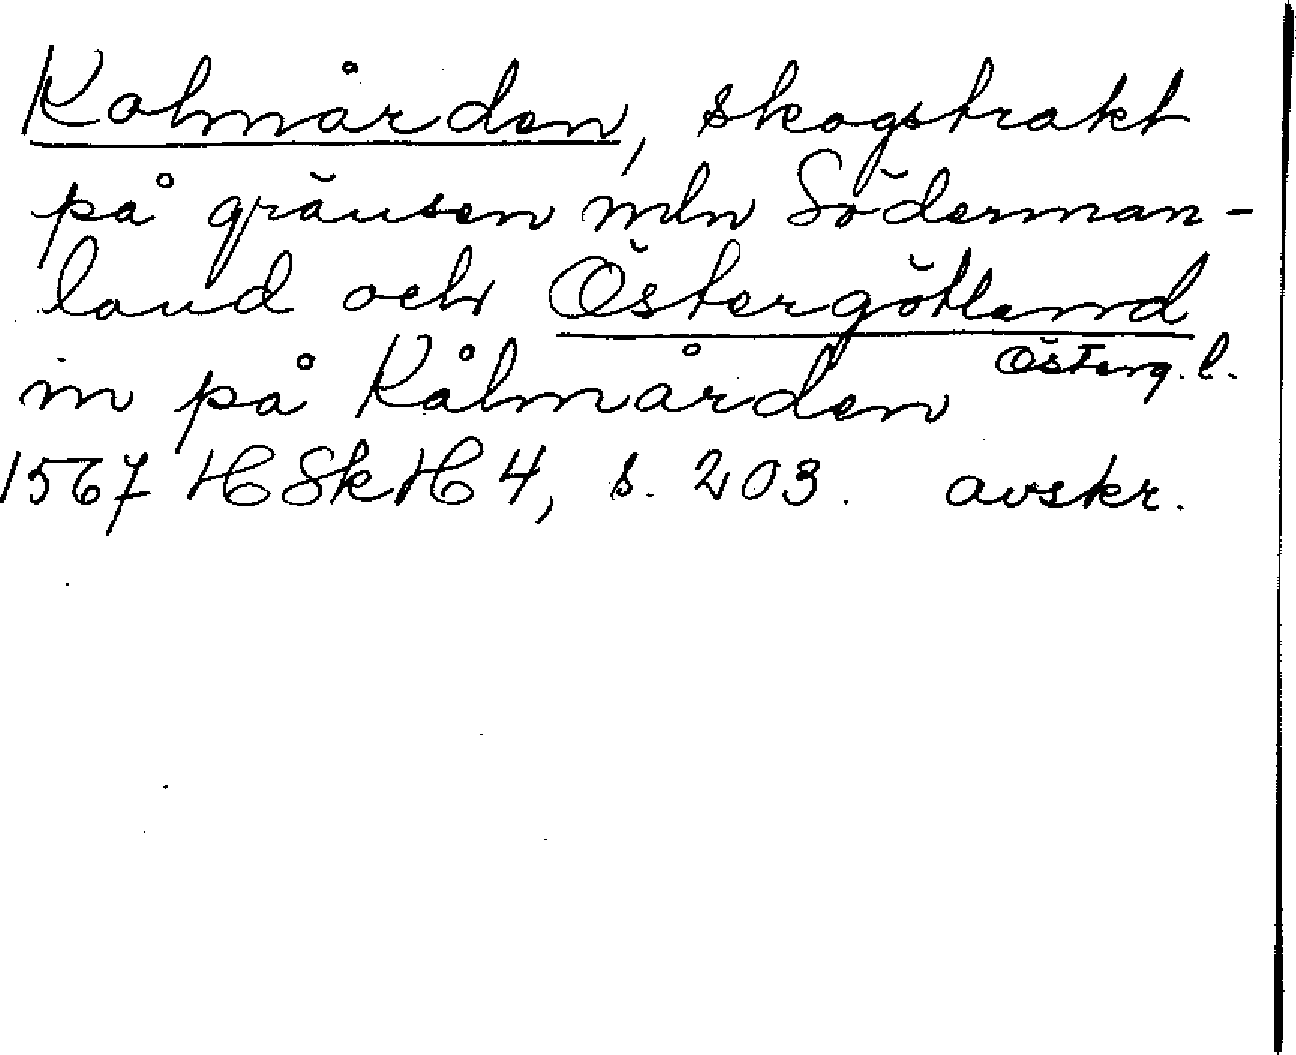 Kolmården, skogstrakt
på gränsen mln Söderman-
land och Östergötland
Österg. l.
in på Kålmården
1567 HSkH 4, s. 203. avskr.